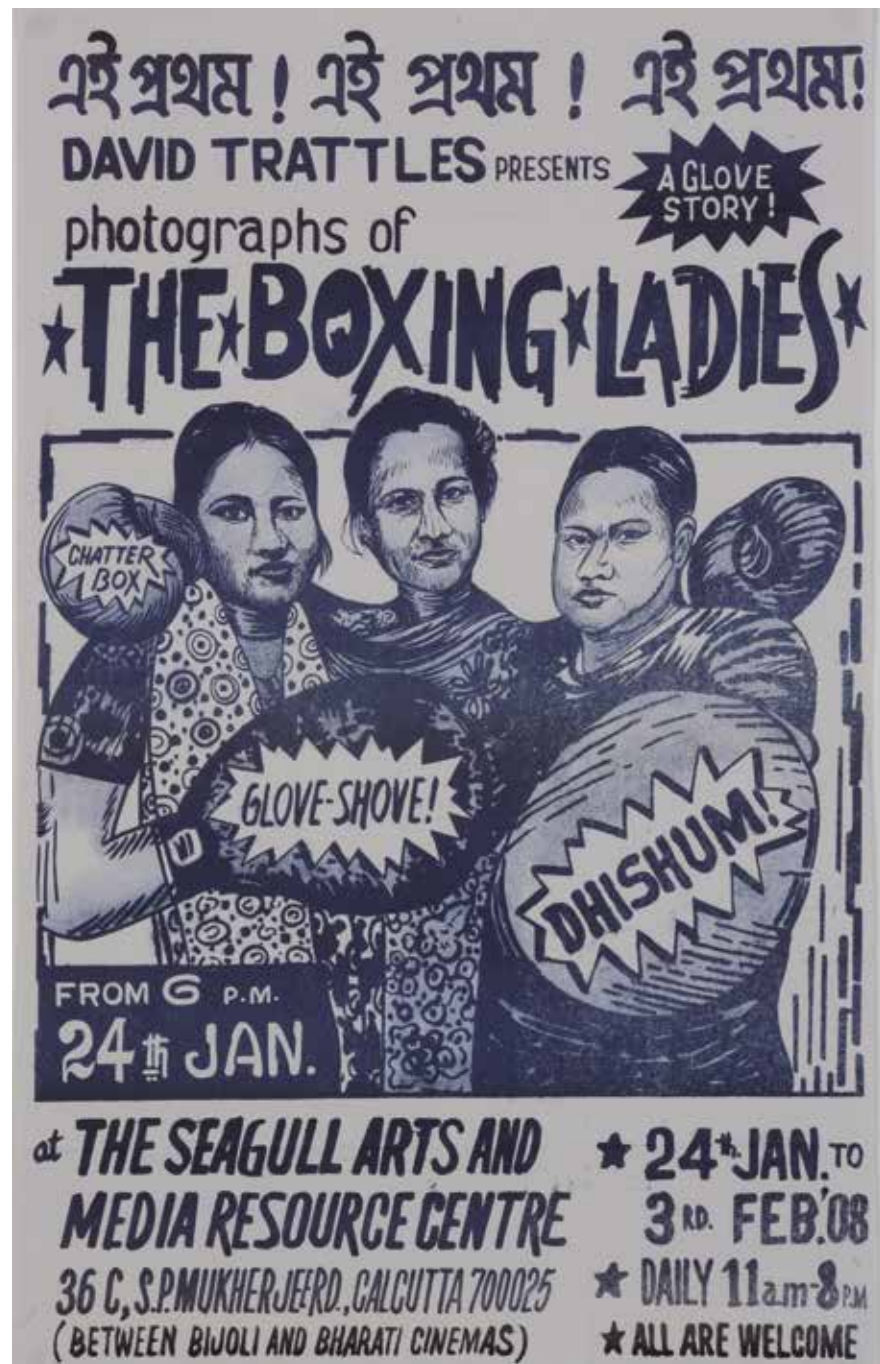 এই প্রথম ! এই প্রথম ! এই প্রথম!
DAVID TRATTLES PRESENTS
A GLOVE
STORY!
photographs of
THE BOXING LADIES
CHATTER
BOX
GLOVE-SHOVE!
DHISHUM!
FROM 6 P.M.
24th JAN.
at THE SEAGULL ARTS AND
MEDIA RESOURCE CENTRE
36 C, S.P. MUKHERJEE RD., CALCUTTA 700025
(BETWEEN BIJOLI AND BHARATI CINEMAS)
★ 24th JAN. TO
3RD. FEB.'08
★ DAILY 11am-8PM
★ ALL ARE WELCOME